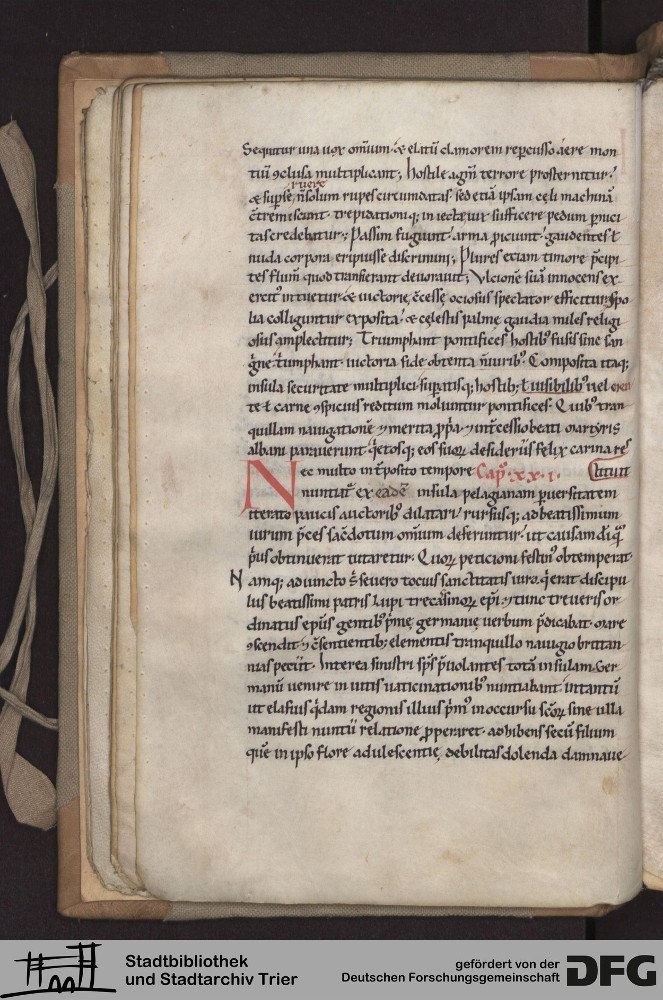 Sequitur una uox omium· & elatū clamorem repercusso aere mon
tiū ꝯclusa multiplicant; hostile agm̄ terrore prosternitur·
ruere
& sup se n̄ solum rupes circumdatas· sed etiā ipsam cęli machinā
c̄tremiscunt· trepidationiq; iniectę uix sufficere pedum ꝑnici
tas credebatur; Passim fugiunt· arma ꝓiciunt· gaudentes ł
nuda corpora eripuisse discrimini; Plures etiam timore p̄cipi
tes flum̄ quod transierant deuorauit; Vltionē suā innocens ex
ercitꝰ intuetur· & uictorię c̄cessę ociosus spectator efficitur; Spo
lia colliguntur exposita· & cęlestis palmę gaudia miles religi
osus amplectitur; Triumphant pontifices hostibꝰ fusis sine san
guine· triumphant uictoria fide obtenta n̄ uiribꝰ. Composita itaq;
insula securitate multiplici· supatisq; hostibꝰ ł uisibilibꝰ uel
te ł carne ꝯspicuis reditum moliuntur pontifices. Quibꝰ tran
quillam nauigationē ⁊ merita ꝓpa· ⁊ int̄cessio beati martyris
albani parauerunt· q̄etosq; eos suoꝝ desideriis felix carina re
Nec multo int̄posito tempore Cap̄. XX.I. stituit
nuntiat̄ ex eadē insula pelagianam ꝑuersitatem
iterato paucis auctoribꝰ dilatari· rursusq; ad beatissimum
uirum p̄ces sac̄dotum omium deferuntur· ut causam dī quā
p̄us obtinuerat tutaretur. Quoꝝ peticioni festinꝰ obtemperat·
Namq; adiuncto s̄ seuero totius sanctitatis uiro· q̄ erat discipu
lus beatissimi patris lupi trecasinoꝝ ep̄i· ⁊ tunc treueris or
dinatus ep̄us gentibꝰ p̄mę germanię uerbum p̄dicabat· mare
ꝯscendit· ⁊ c̄sentientibꝰ elementis tranquillo nauigio brittan
nias petiit. Interea sinistri sp̄s p̄uolantes totā insulam· Ger
manū uenire inuitis uaticinationibꝰ nuntiabant· intantū
ut elafius q̄dam regionis illius p̄mꝰ in occursu sc̄oꝝ sine ulla
manifesti nuntii relatione ꝓperaret· adhibens secū filium
quē in ipso flore adulescentię debilitas dolenda damnaue
Stadtbibliothek
und Stadtarchiv Trier
gefördert von der
Deutschen Forschungsgemeinschaft
DFG